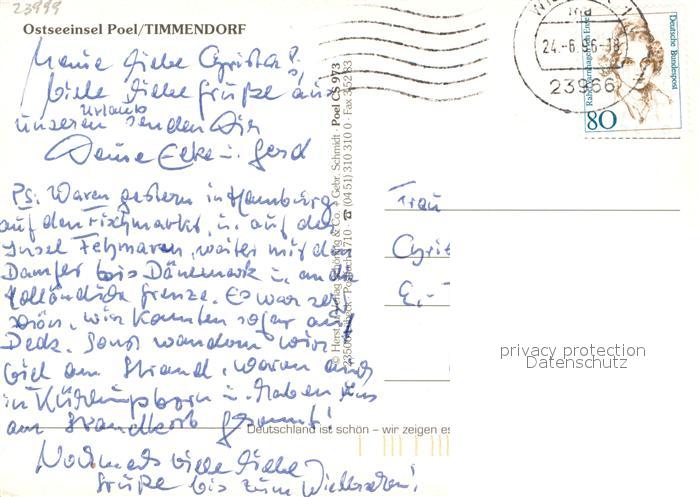 23999
Ostseeinsel Poel/TIMMENDORF
Meine liebe Christa!
viele liebe Grüße aus
unseren Urlaub senden Dir
Deine Elke u. Gerd
Ps: Waren gestern in Hamburg
auf den Fischmarkt, u. auf der
Insel Fehmarn, weiter mit den
Dampfer bis Dänemark u. an die
Holländische Grenze. Es war sehr
schön, wir konnten sogar auf
Deck. Sonst wandern wir
viel am Strand, waren auch
in Kühlungsborn u. haben uns
am Strandkorb gesonnt!
Nochmals viele liebe
Grüße bis zum Wiedersehen!
Gebr. Schmidt · Poel CS 973
☎ (04 51) 310 310 0 · Fax
Deutschland ist schön – wir zeigen es
24.-6.96-18
23966
Deutsche Bundespost
80
Frau
privacy protection
Datenschutz